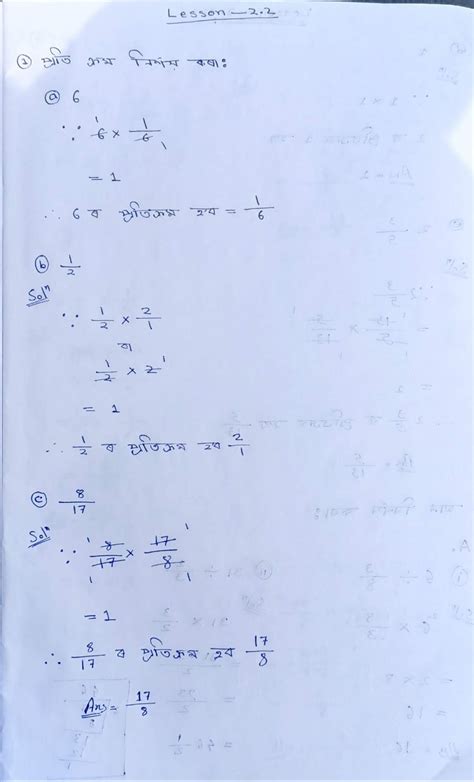 Lesson - 2.2
① প্ৰতিক্ৰম নিৰ্ণয় কৰা:
ⓐ 6
∵ 6 × 1/6
= 1
∴ 6 ৰ প্ৰতিক্ৰম হব = 1/6
ⓑ 1/2
Solⁿ
∵ 1/2 × 2/1
বা
1/2 × 2
= 1
∴ 1/2 ৰ প্ৰতিক্ৰম হব 2/1
ⓒ 8/17
Solⁿ
∵ 8/17 × 17/8
= 1
∴ 8/17 ৰ প্ৰতিক্ৰম হব 17/8
Ans = 17/8